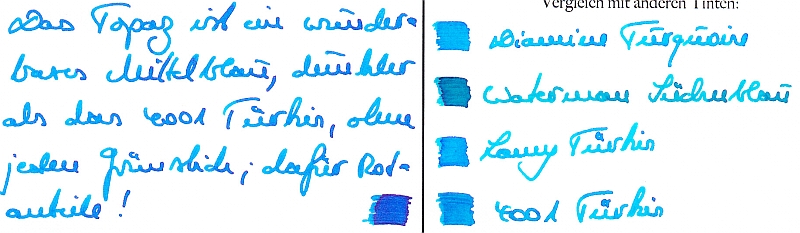 Das Topaz ist ein wunder-
bares Mittelblau, dunkler
als das 4001 Türkis, ohne
jeden Grünstich; dafür Rot-
anteile!
Vergleich mit anderen Tinten:
Diamine Turquoise
Waterman Südseeblau
Lamy Türkis
4001 Türkis